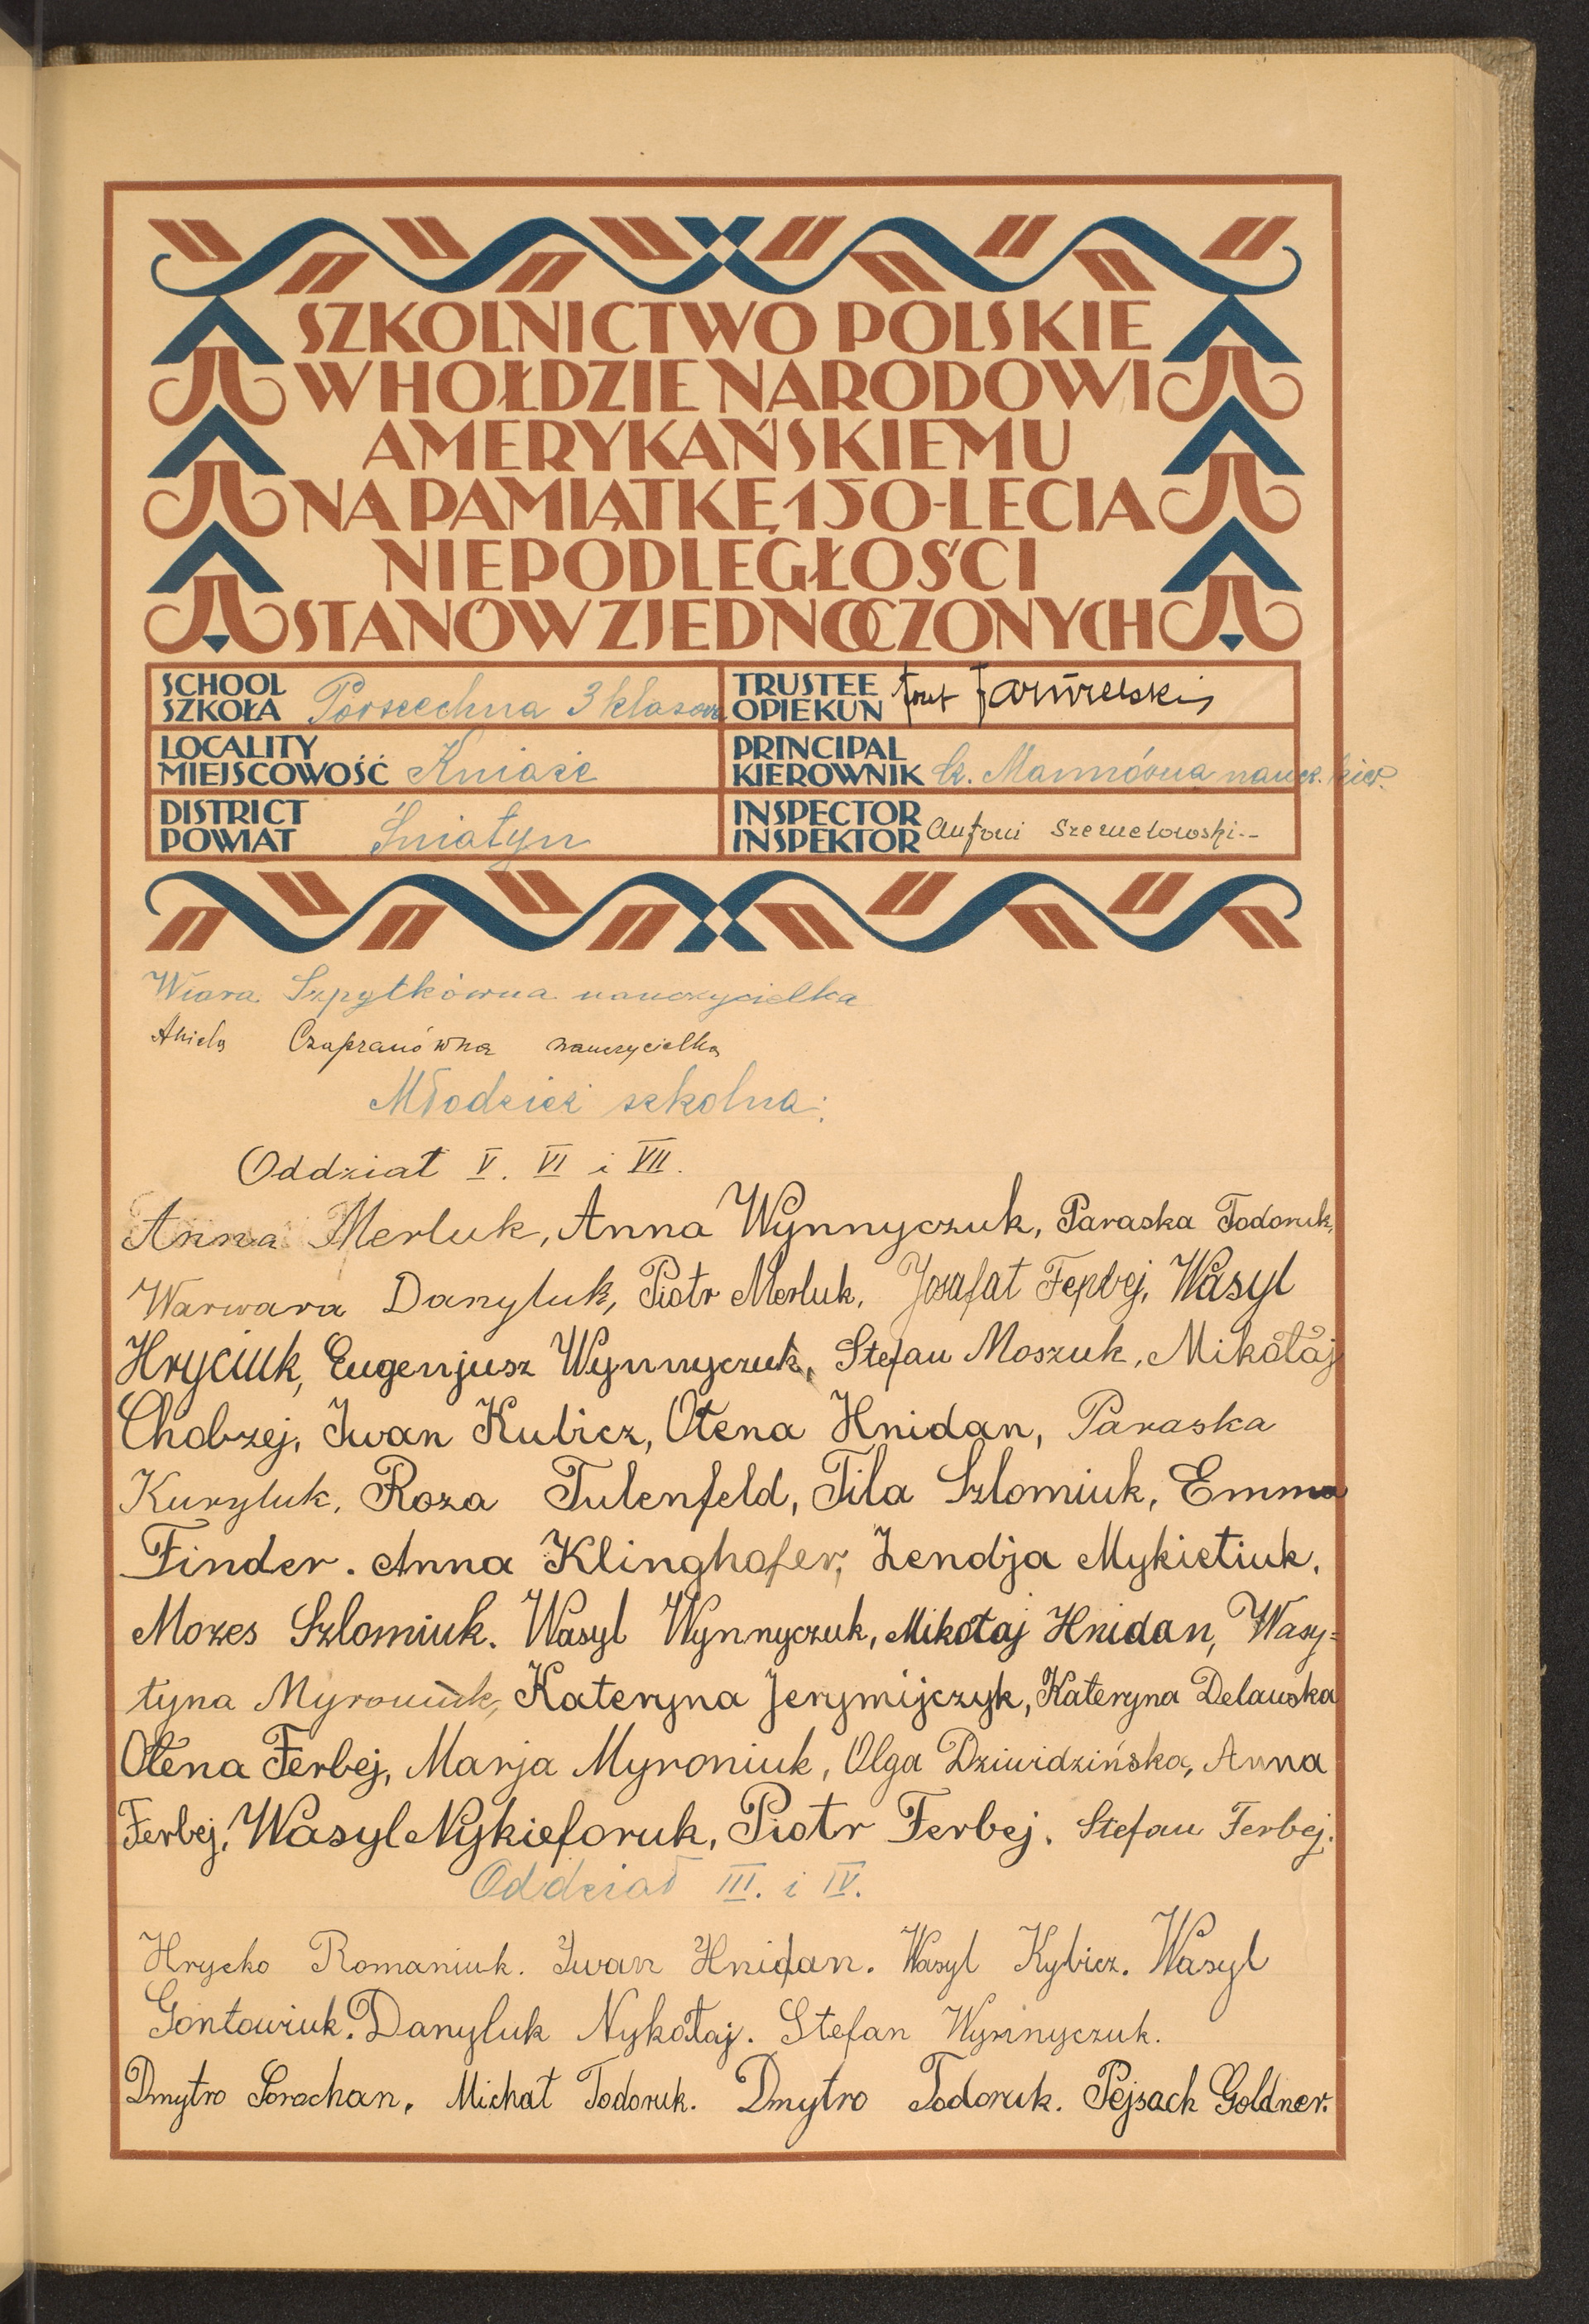 SZKOLNICTWO POLSKIE
W HOŁDZIE NARODOWI
AMERYKAŃSKIEMU
NA PAMIĄTKĘ 150-LECIA
NIEPODLEGŁOŚCI
STANÓW ZJEDNOCZONYCH
SCHOOL
SZKOŁA Powszechna 3 klasowa
TRUSTEE
OPIEKUN Józef
LOCALITY
MIEJSCOWOŚĆ Kniaże
PRINCIPAL
KIEROWNIK Cz. Mannówna naucz. kier.
DISTRICT
POWIAT Śniatyn
INSPECTOR
INSPEKTOR Antoni
Wiara Szpytkówna nauczycielka
Aniela Czapranówna nauczycielka
Młodzież szkolna:
Oddział V. VI i VII.
Anna Merluk, Anna Wynnyczuk, Paraska Todoruk,
Warwara Danyluk, Piotr Merluk, Jozafat Ferbej, Wasyl
Hryciuk, Eugenjusz Wynnyczuk, Stefan Moszuk, Mikołaj
Chobzej, Iwan Kubicz, Ołena Hnidan, Paraska
Kuryluk, Roza Tulenfeld, Tila Szlomiuk, Emma
Finder. Anna Klinghofer, Zendja Mykietiuk,
Mozes Szlomiuk. Wasyl Wynnyczuk, Mikołaj Hnidan, Wasy=
tyna Myroniuk, Kateryna Jerymijczyk, Kateryna Delawska
Ołena Ferbej, Marja Myroniuk, Olga Dziwidzińska, Anna
Ferbej, Wasyl Nykieforuk, Piotr Ferbej. Stefan Ferbej.
Oddział III. i IV.
Hrycko Romaniuk. Iwan Hnidan. Wasyl Kybicz. Wasyl
Gontowiuk. Danyluk Nykołaj. Stefan Wynnyczuk.
Dmytro Sorochan. Michał Todoruk. Dmytro Todoruk. Pejsach Goldner.